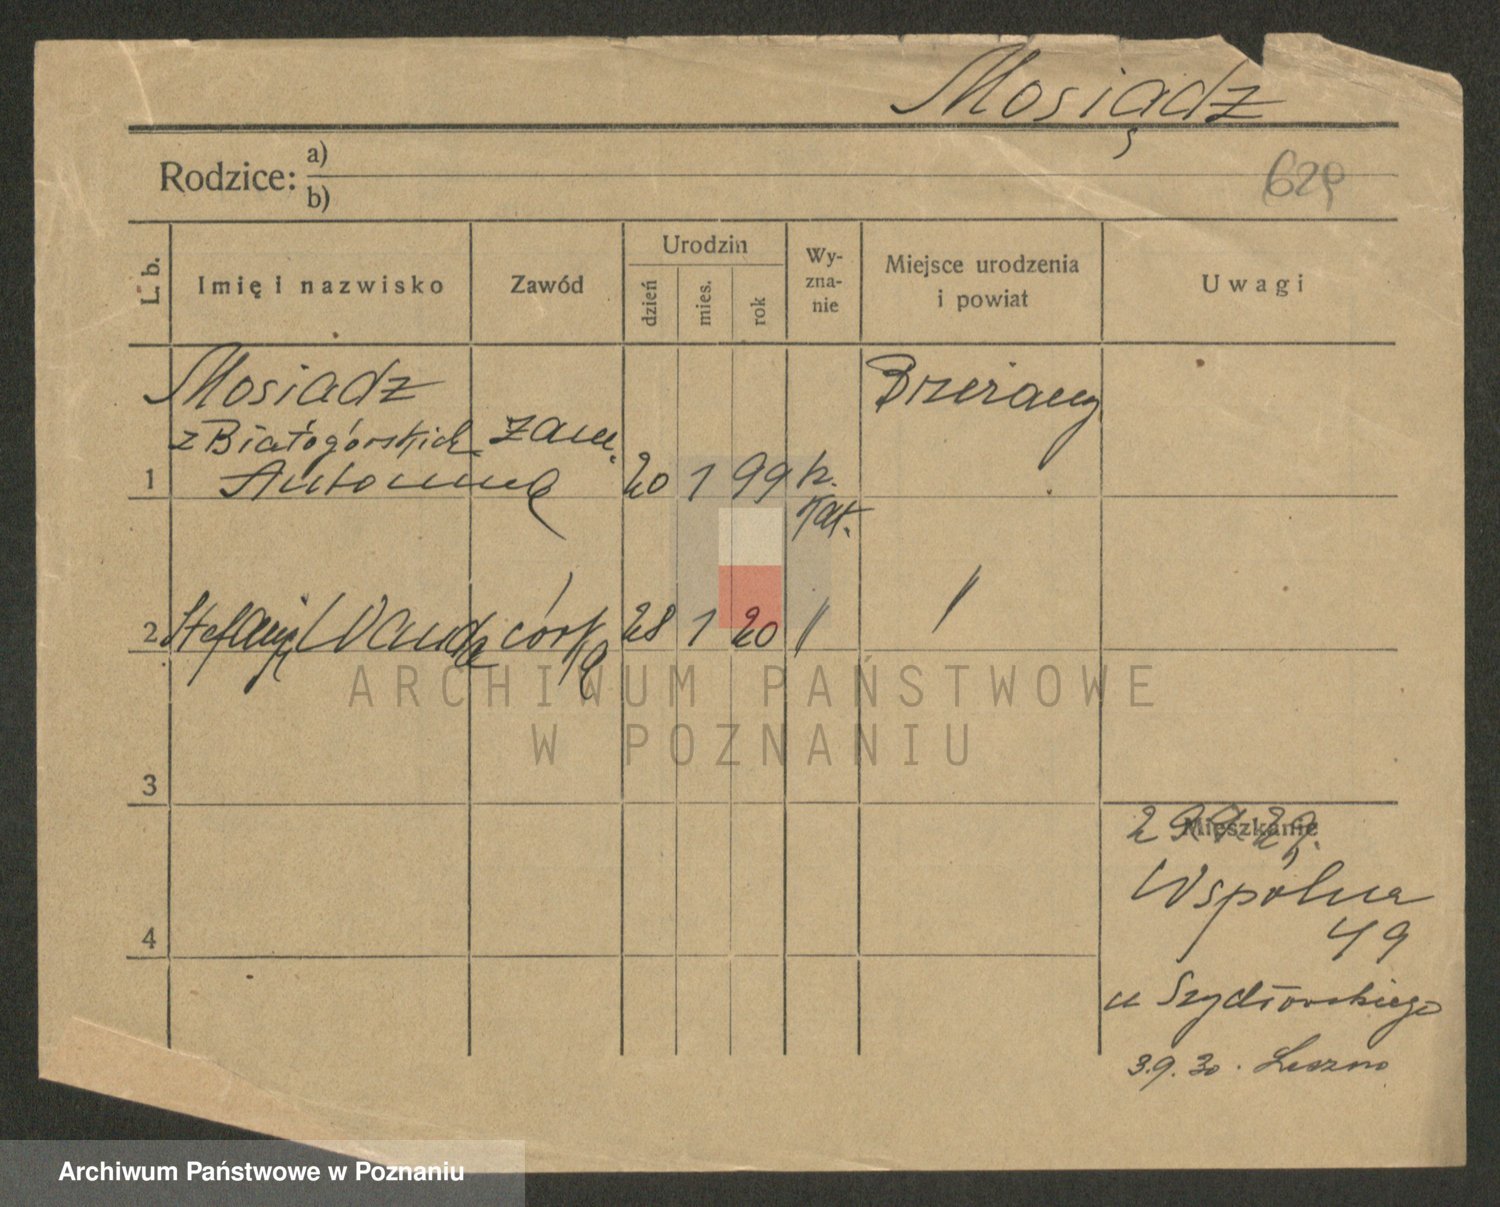 Mosiądz
Rodzice: a)
b)
629
L. b.
Imię i nazwisko
Zawód
Urodzin
dzień
mies.
rok
Wy-
zna-
nie
Miejsce urodzenia
i powiat
Uwagi
Mosiadz
z Białogórskich zam.
1 Antonina 20 1 99 rz.
kat.
Brzeżany
2 Stefanja Wanda córka 28 1 20 " "
ARCHIWUM PAŃSTWOWE
W POZNANIU
3
Mieszkanie
Wspólna
49
4
u Szydłowskiego
3.9.30. Leszno
Archiwum Państwowe w Poznaniu